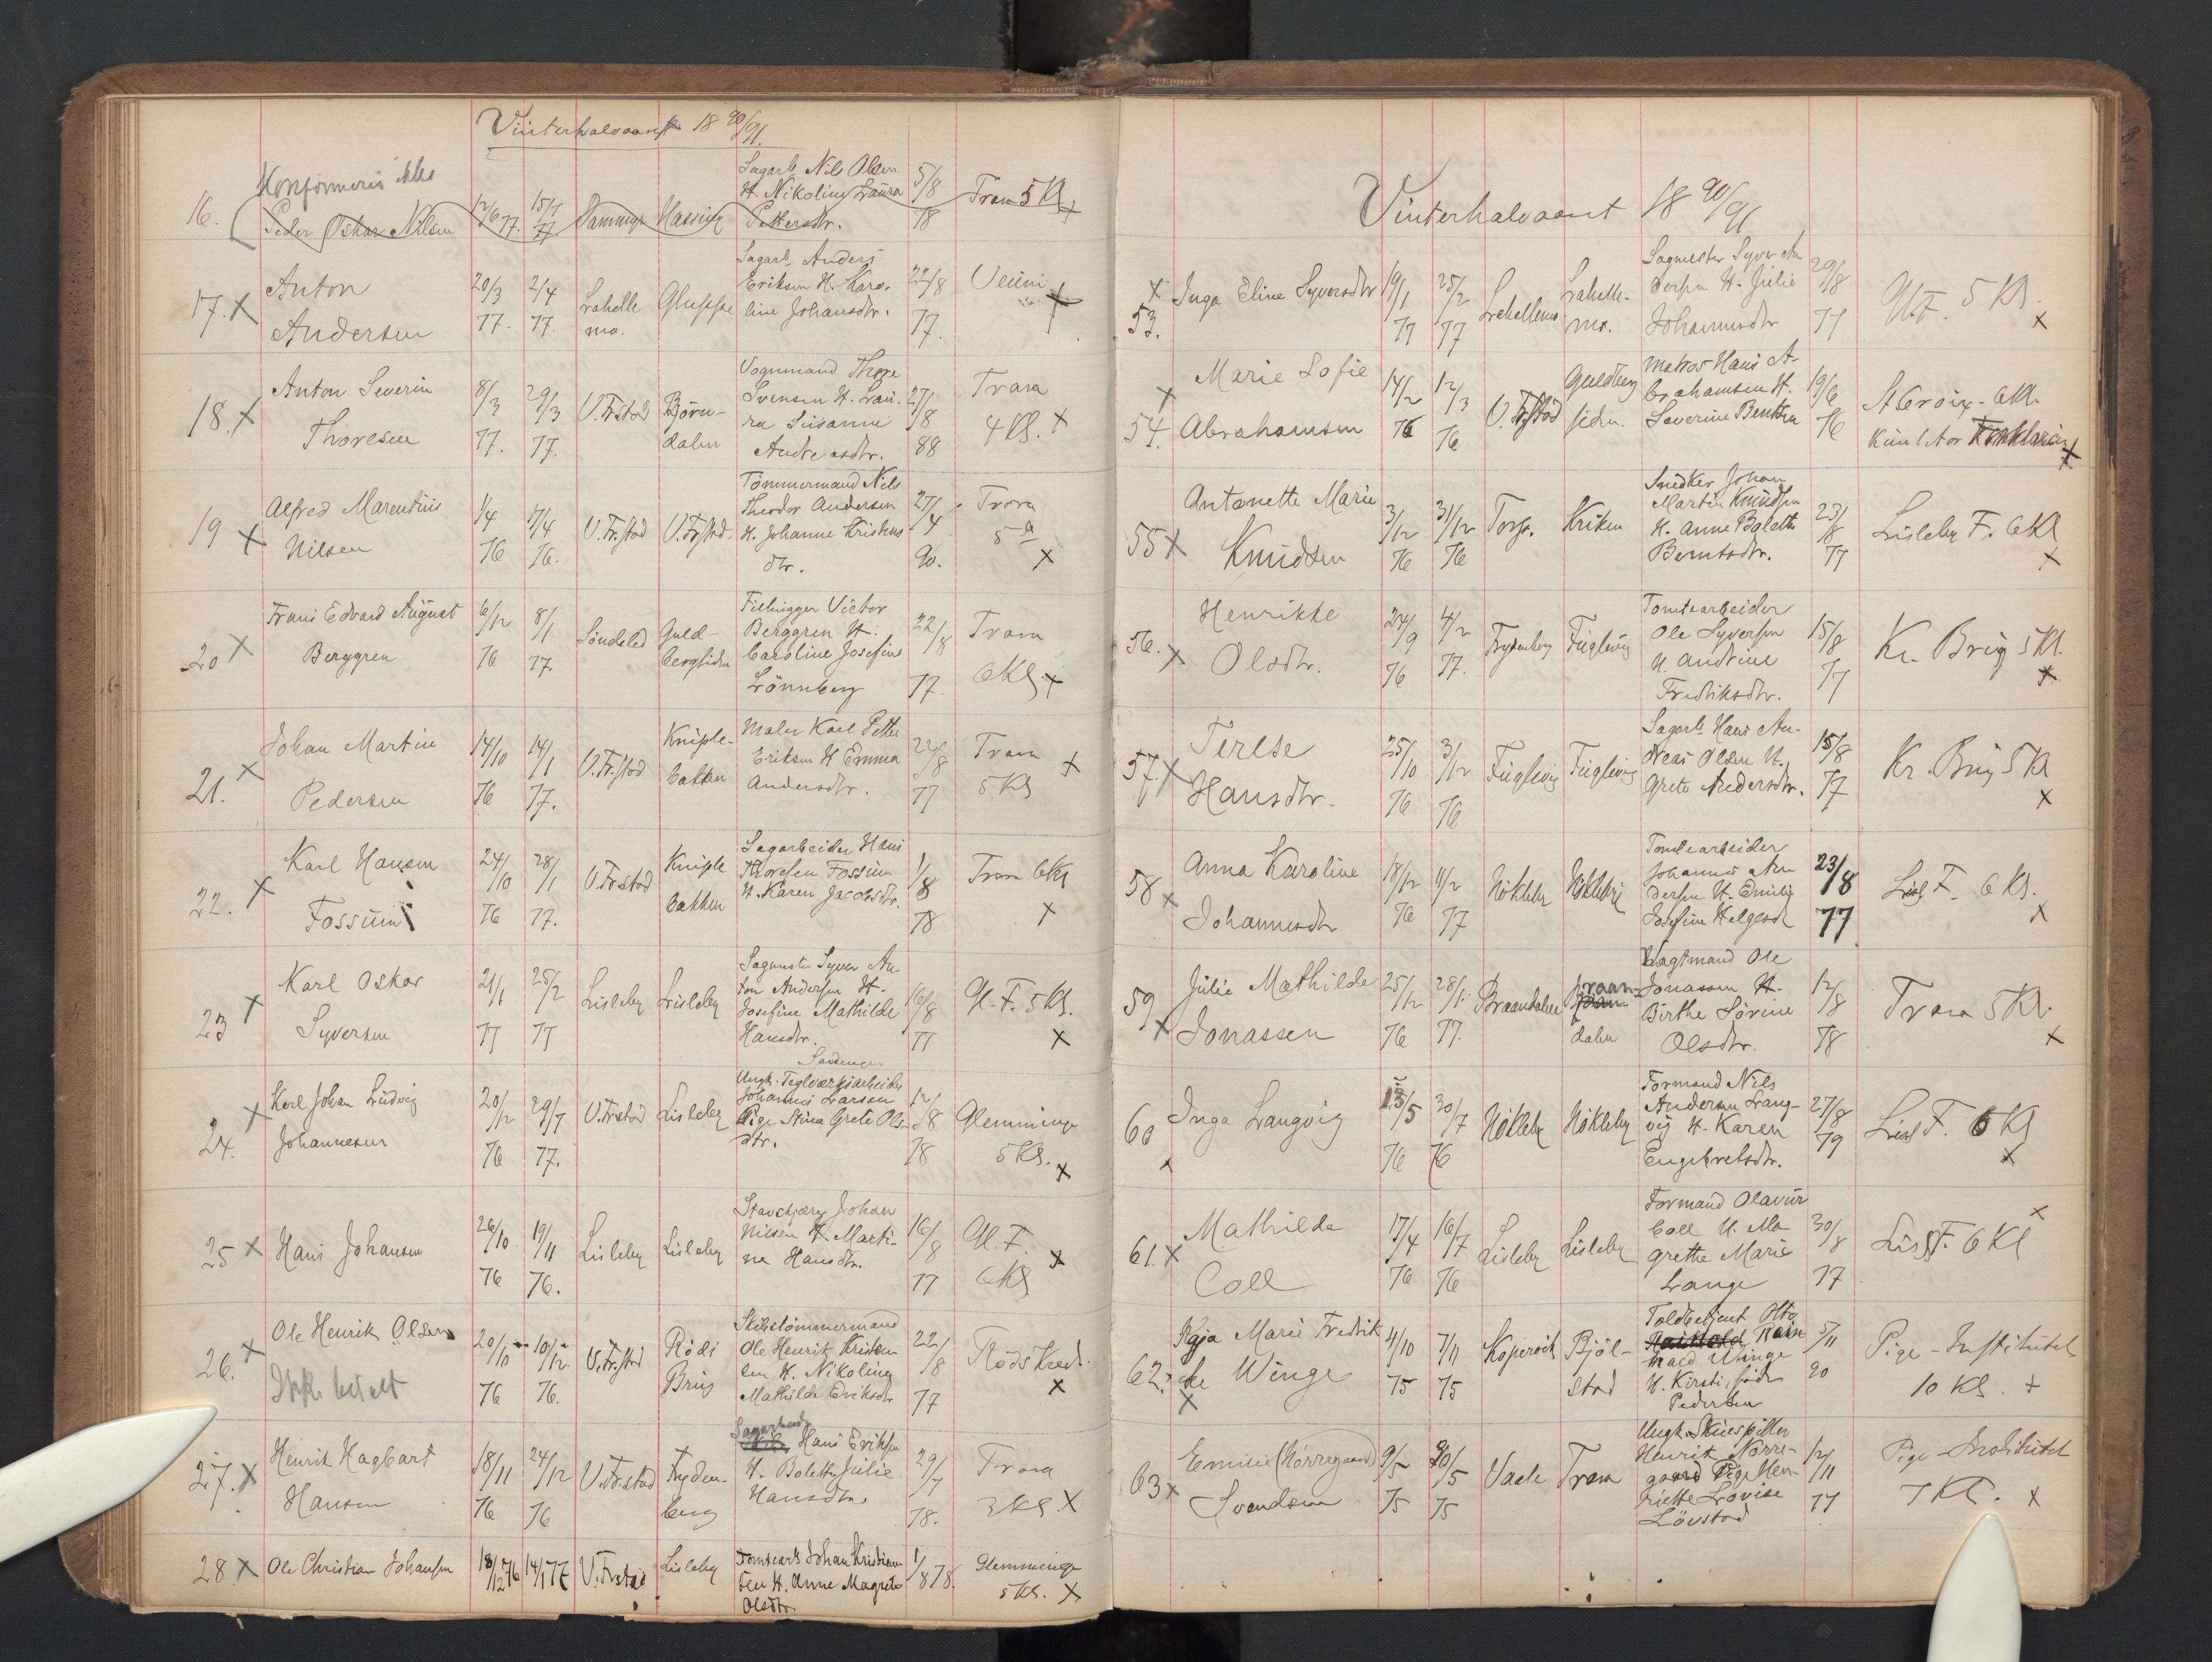 Vinterhalvaaret 18 90/91.
Konfirmeres ikke
16. Peder Oskar Nilsen 12/6 77. 15/7 77. Sagarb. Nils Olsen
H. Nikoline Laura
Pettersdtr. 5/8 78 Trara 5 Kl X
17. X Anton
Andersen 20/3 77. 2/4 77. Lahelle
mo. Gluppe Sagarb. Anders
Eriksen H. Karo-
line Johansdtr. 22/8 77. X
18. X Anton Severin
Thoresen 8/3 77. 29/3 77. V. Frstad Bjørn-
dalen Vognmand Thore
Svensen H. Lau-
ra Susanne
Andreasdtr. 27/8 88 Trara
4 Kl. X
19 X Alfred Marentius
Nilsen 1/4 76 17/4 76. V. Frstad V. Frstad. Tömmermand Nils
Theodor Andersen
H. Johanne Kristens
dtr. 27/4 90. Trara
5 X
20 X Frans Edvard August
Berggren 6/12 76 8/1 77. Söndeled Guld-
bergsiden Filhugger Victor
Berggren H.
Caroline Josefine
Lönnberg 22/8 77. Trara
6 Kl X
21. X Johan Martin
Pedersen 14/10 76 14/1 77. V. Fr.stad Kniple-
bakken Maler Karl Petter
Eriksen H Emma
Andersdtr. 22/8 77 Trara
5 Kl X
22. X Karl Hansen
Fossum 24/10 76 28/1 77. V. Fr.stad Kniple
bakken Sagarbeider Hans
Thoresen Fossum
H. Karen Jacobsdtr. 1/8 78 Trara 6 Kl
X
23 X Karl Oskar
Syversen 21/1 77 25/2 77 Lisleby Lisleby Sagmester Syver An
ton Andersen H.
Josefine Mathilde
Hansdtr. 16/8 77 Gl. F. 5 Kl.
X
24. X Karl Johan Ludvig
Johannesen 20/12 76 29/7 77. V. Frstad Lisleby Ungk. Teglværksarbeider
Johannes Larssen
Pige Stina Grete Ols-
dtr. 12/8 78 Glemminge
5 Kl. X
25 X Hans Johansen 26/10 76 19/11 76. Lisleby Lisleby Johan
Nilsen H. Marti-
ne Hansdtr. 16/8 77 Gl. F.
6 Kl X
26. X Ole Henrik Olsen
Ikke betalt 20/10 76 10/12 76. V. Fr.stad Rödi
Brug Skibstömmermand
Ole Henrik Kristen-
sen H. Nikoline
Mathilde Eriksdtr 22/8 77 Röds Kreds.
X
27. X Henrik Hagbart
Hansen 18/11 76 24/12 76 V. Fr.stad Fryden-
berg Sagarbeid
Hans Eriksen
H. Bolette Julie
Hansdtr. 29/7 78. Trara
3 Kl. X
28 X Ole Christian Johansen 18/12 76 14/1 77 V. Frstad Lisleby Tomtearb Johan Kristian-
sen H. Anne Magrete
Olsdtr. 1/8 78. Glemminge
5 Kl. X
Vinterhalvaaret 18 90/91
X 53. Inga Eline Syversdtr 19/1 77 25/2 77 Lahellemo Lahelle-
mo. Sagmester Syver An
dersen H. Julie
Johannesdtr 29/8 77 Gl. F. 5 Kl.
X
X 54. Marie Sofie
Abrahamsen 14/2 76 12/3 76 V. Frstad Guldberg
siden. Matros Hans A-
brahamsen H.
Severine Bentsen 19/6 76 St. Croix- 6 Kl.
X
55 X Antonette Marie
Knudsen 3/12 76 31/12 76 Torp. Kriken Snedker Johan
Martin Knudsen
H. Anne Bolette
Berntsdtr. 23/8 77 Lisleby F. 6 Kl
X
56. X Henrikke
Olsdtr. 24/9 76 4/2 77. Frydenberg Fuglevig Tomtearbeider
Ole Syversen
H. Andrine
Fredriksdtr. 15/8 77 Kr. Brug 5 Kl.
X
57. X Terese
Hansdtr. 25/10 76 3/12 76 Fuglevig Fuglevig Sagarb. Hans An-
dreas Olsen H.
Grete Andersdtr. 15/8 77 Kr. Brug 5 Kl
X
58 X Anna Karoline
Johannesdtr 18/12 76 11/2 77 Nökleby Nökleby Tomtearbeider
Johannes An
dersen H. Emilie
Josefine Helgesd 23/8 77 Lisl F. 6 Kl.
X
59 X Julie Mathilde
Jonassen 25/12 76 28/1 77. Braandalen Braan-
dalen Vagtmand Ole
Jonassen H.
Birthe Sörine
Olsdtr. 12/8 78 Trara 5 Kl.
X
60 X Inga Langvig 13/5 76 30/7 76 Nökleby Nökleby Formand Nils
Andersen Lang-
vig H. Karen
Engebretsdtr. 27/8 79 Lisl F. 6 Kl
X
61. X Mathilda
Coll 17/4 76 16/7 76 Lisleby Lisleby Formand Olavur
Coll H. Ma
grethe Marie
Lange 30/8 77 Lisl F. 6 Kl
X
62. X Kaja Marie Fredrik
ke Winge 4/10 75 7/11 75 Kopervik Bjöl-
stad Toldbetjent Otto
Rein
hald Winge
H. Kirsti
Pedersen 5/11 90 Pige-Institutet
10 Kl. X
63 X Emilie (Nörregaard)
Svendsen 9/5 75 30/5 75 Vaale Trara Ungk. Skuespiller
Henrik Nörre-
gaard Pige Hen-
riette Lovise
Lövstad 12/11 77 Pige-Institutet
7 Kl. X